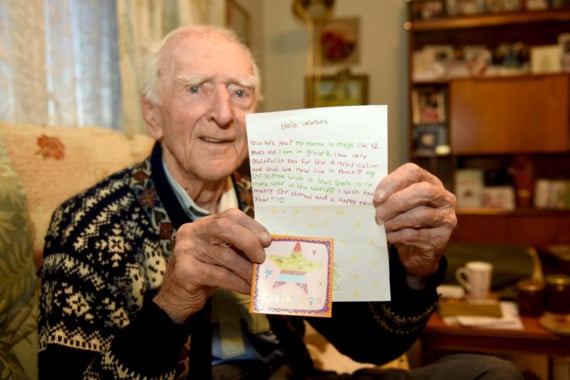 Hallo veterans
How are you? my name is maja I'm 12
years old I am in group 8 I am very
gratefull to you for the diversification
and that we now live in peace ♡ my
christmas wish is that there is no
more war in the world ♡ I wish you
merry christmas and a happy new
Year!!♡